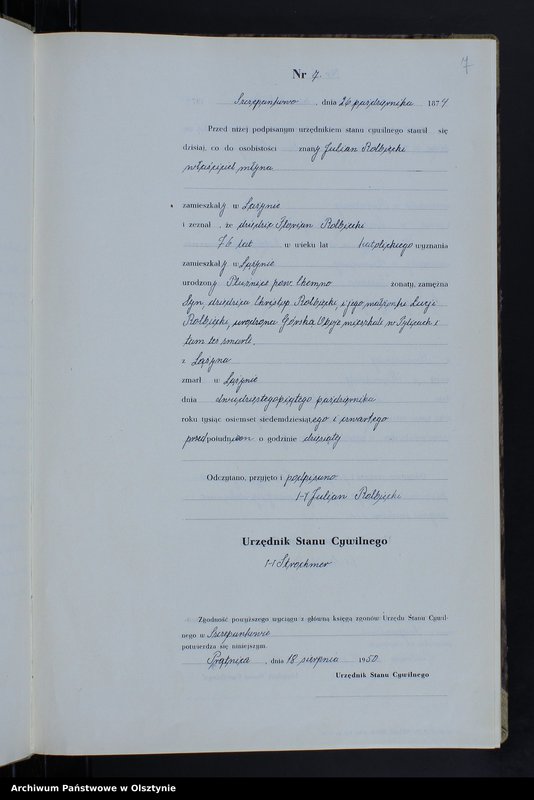 7
Nr 7.
Szczepankowo, dnia 26 października 1874
Przed niżej podpisanym urzędnikiem stanu cywilnego stawił się
dzisiaj, co do osobistości znany Julian Rolbiecki
właściciel młyna
zamieszkały w Łążynie
i zeznał, że dziedzic Florian Rolbiecki
76 lat w wieku lat katolickiego wyznania
zamieszkały w Łążynie
urodzony Płużnica pow. Chełmno żonaty, zamężna
Syn dziedzica Rolbiecki i jego małżonki Łucji
Rolbiecki, urodzona Górska Oboje mieszkali w i
tam też zmarli.
z Łążyna
zmarł w Łążynie
dnia dwudziestegopiątego października
roku tysiąc osiemset siedemdziesiątego i czwartego
przedpołudniem o godzinie dziesiątej
Odczytano, przyjęto i podpisano
/-/ Julian Rolbiecki
Urzędnik Stanu Cywilnego
/-/
Zgodność powyższego wyciągu z główną księgą zgonów Urzędu Stanu Cywil-
nego w Szczepankowie
potwierdza się niniejszym.
Prątnica, dnia 18 sierpnia 1950
Urzędnik Stanu Cywilnego
Archiwum Państwowe w Olsztynie